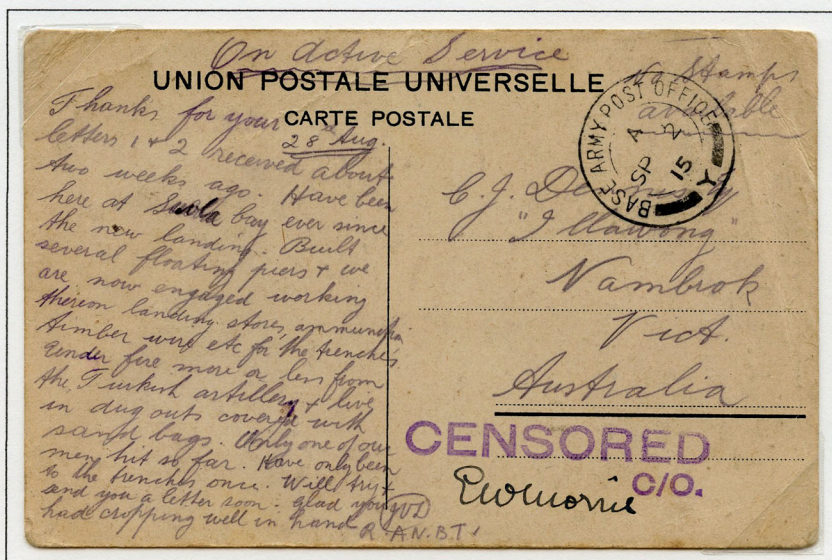 On Active Service
UNION POSTALE UNIVERSELLE
CARTE POSTALE
No Stamps
available
28th Aug.
Thanks for your
letters 1 & 2 received about
two weeks ago. Have been
here at Suvla bay ever since
the new landing. Built
several floating piers & we
are now engaged working
thereon landing stores, ammunition
timber wire etc for the trenches
Under fire more or less from
the Turkish artillery & live
in dug outs covered with
sand bags. Only one of our
men hit so far. Have only been
to the trenches once. Will try &
send you a letter soon. Glad you
had cropping well in hand
R.A.N.B.T.
BASE ARMY POST OFFICE
Y
A
SP 2
15
C. J.
"Illawong"
Nambrok
Vict.
Australia
CENSORED
C/O.